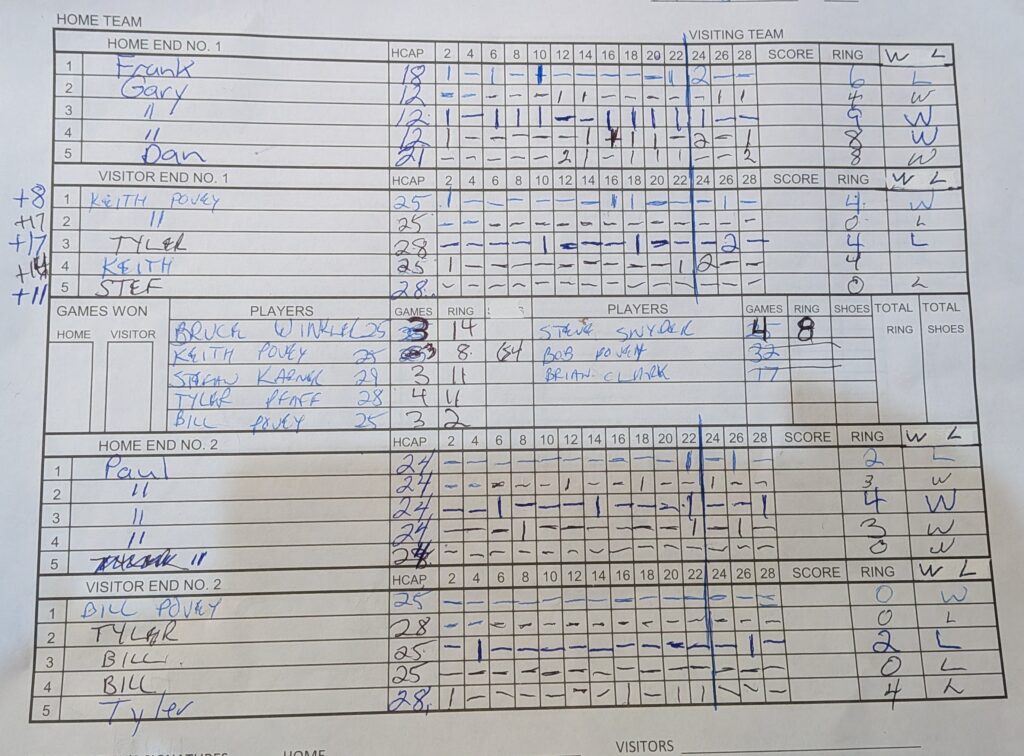 HOME TEAM VISITING TEAM
HOME END NO. 1 HCAP 2 4 6 8 10 12 14 16 18 20 22 24 26 28 SCORE RING W L
1 Frank 18 1 - 1 - 1 - - - - - 1 2 - - 6 L
2 Gary 12 - - - - - 1 1 - - - - - 1 1 4 W
3 " 12 1 - 1 1 1 - - 1 1 1 1 1 - - 9 W
4 " 12 1 - - - - - 1 1 1 1 - 2 - 1 8 W
5 Dan 21 - - - - - 2 1 - 1 1 1 - - 2 8 W
VISITOR END NO. 1 HCAP 2 4 6 8 10 12 14 16 18 20 22 24 26 28 SCORE RING W L
+8 1 KEITH POVEY 25 1 - - - - - - 1 1 - - - 1 - 4 W
+17 2 " 25 - - - - - - - - - - - - - - 0 L
+17 3 TYLER 28 - - - - 1 - - - 1 - - - 2 - 4 L
+14 4 KEITH 25 1 - - - - - - - - - 1 2 - - 4
+11 5 STEF 28 - - - - - - - - - - - - - - 0 L
GAMES WON PLAYERS GAMES RING PLAYERS GAMES RING SHOES TOTAL RING TOTAL SHOES
HOME VISITOR
BRUCE WINKLER 25 3 14 STEVE SNYDER 4 8
KEITH POVEY 25 3 8 54 BOB POVEY 32
STEFAN KARNER 29 3 11 BRIAN CLARK 17
TYLER PFAFF 28 4 4
BILL POVEY 25 3 2
HOME END NO. 2 HCAP 2 4 6 8 10 12 14 16 18 20 22 24 26 28 SCORE RING W L
1 Paul 24 - - - - - - - - - - 1 - 1 - 2 L
2 " 24 - - - - - 1 - - 1 - - 1 - - 3 W
3 " 24 - - 1 - - - 1 - - - 1 - - 1 4 W
4 " 24 - - - 1 - - - - - - 1 - 1 - 3 W
5 " 24 - - - - - - - - - - - - - - 0 W
VISITOR END NO. 2 HCAP 2 4 6 8 10 12 14 16 18 20 22 24 26 28 SCORE RING W L
1 BILL POVEY 25 - - - - - - - - - - - - - - 0 W
2 TYLER 28 - - - - - - - - - - - - - - 0 L
3 BILL 25 - 1 - - - - - - - - - - 1 - 2 L
4 BILL 25 - - - - - - - - - - - - - - 0 L
5 Tyler 28 1 - - - - - - - 1 - 1 1 - - 4 L
HOME VISITORS